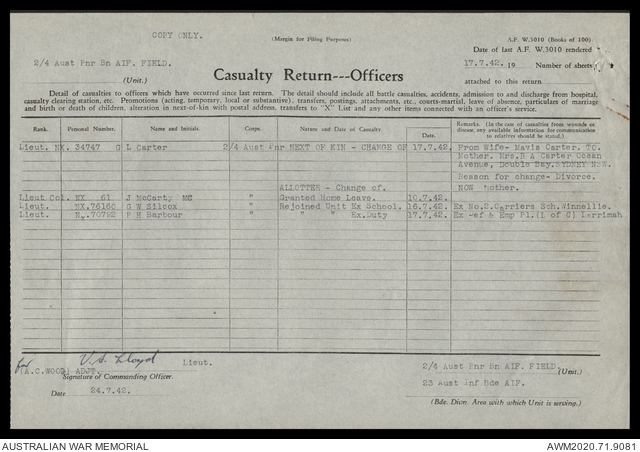 COPY ONLY.
(Margin for Filing Purposes)
A.F. W.3010 (Books of 100)
Date of last A.F. W.3010 rendered
2/4 Aust Pnr Bn AIF. FIELD.
17.7.42. 19 Number of sheets
(Unit.)
Casualty Return---Officers
attached to this return
Detail of casualties to officers which have occurred since last return. The detail should include all battle casualties, accidents, admission to and discharge from hospital,
casualty clearing station, etc. Promotions (acting, temporary, local or substantive), transfers, postings, attachments, etc., courts-martial, leave of absence, particulars of marriage
and birth or death of children, alteration in next-of-kin with postal address, transfers to "X" List and any other items connected with an officer's service.
Rank. Personal Number. Name and Initials. Corps. Nature and Date of Casualty Date. Remarks. (In the case of casualties from wounds or
disease, any available information for communication
to relatives should be stated.)
Lieut. NX. 34747 G L Carter 2/4 Aust Pnr NEXT OF KIN - CHANGE OF 17.7.42. From Wife- Mavis Carter. TO.
Mother. Mrs. B A Carter Ocean
Avenue, Double Bay. SYDNEY NSW.
Reason for change- Divorce.
ALLOTTER - Change of. NOW Mother.
Lieut Col. NX 61 J McCarty MC " Granted Home Leave. 10.7.42.
Lieut. NX.76160 G W Silcox " Rejoined Unit Ex School. 16.7.42. Ex No.2.Carriers Sch.Winnellie.
Lieut. 70792 P H Barbour " " " Ex.Duty 17.7.42. Ex & Emp Pl.(L of C) Larrimah
for V.S. Lloyd Lieut.
(A.C.WOOD) ADJT.
Signature of Commanding Officer.
Date 24.7.42.
2/4 Aust Pnr Bn AIF. FIELD. (Unit.)
23 Aust Inf Bde AIF.
(Bde. Divn. Area with which Unit is serving.)
AUSTRALIAN WAR MEMORIAL
AWM2020.71.9081